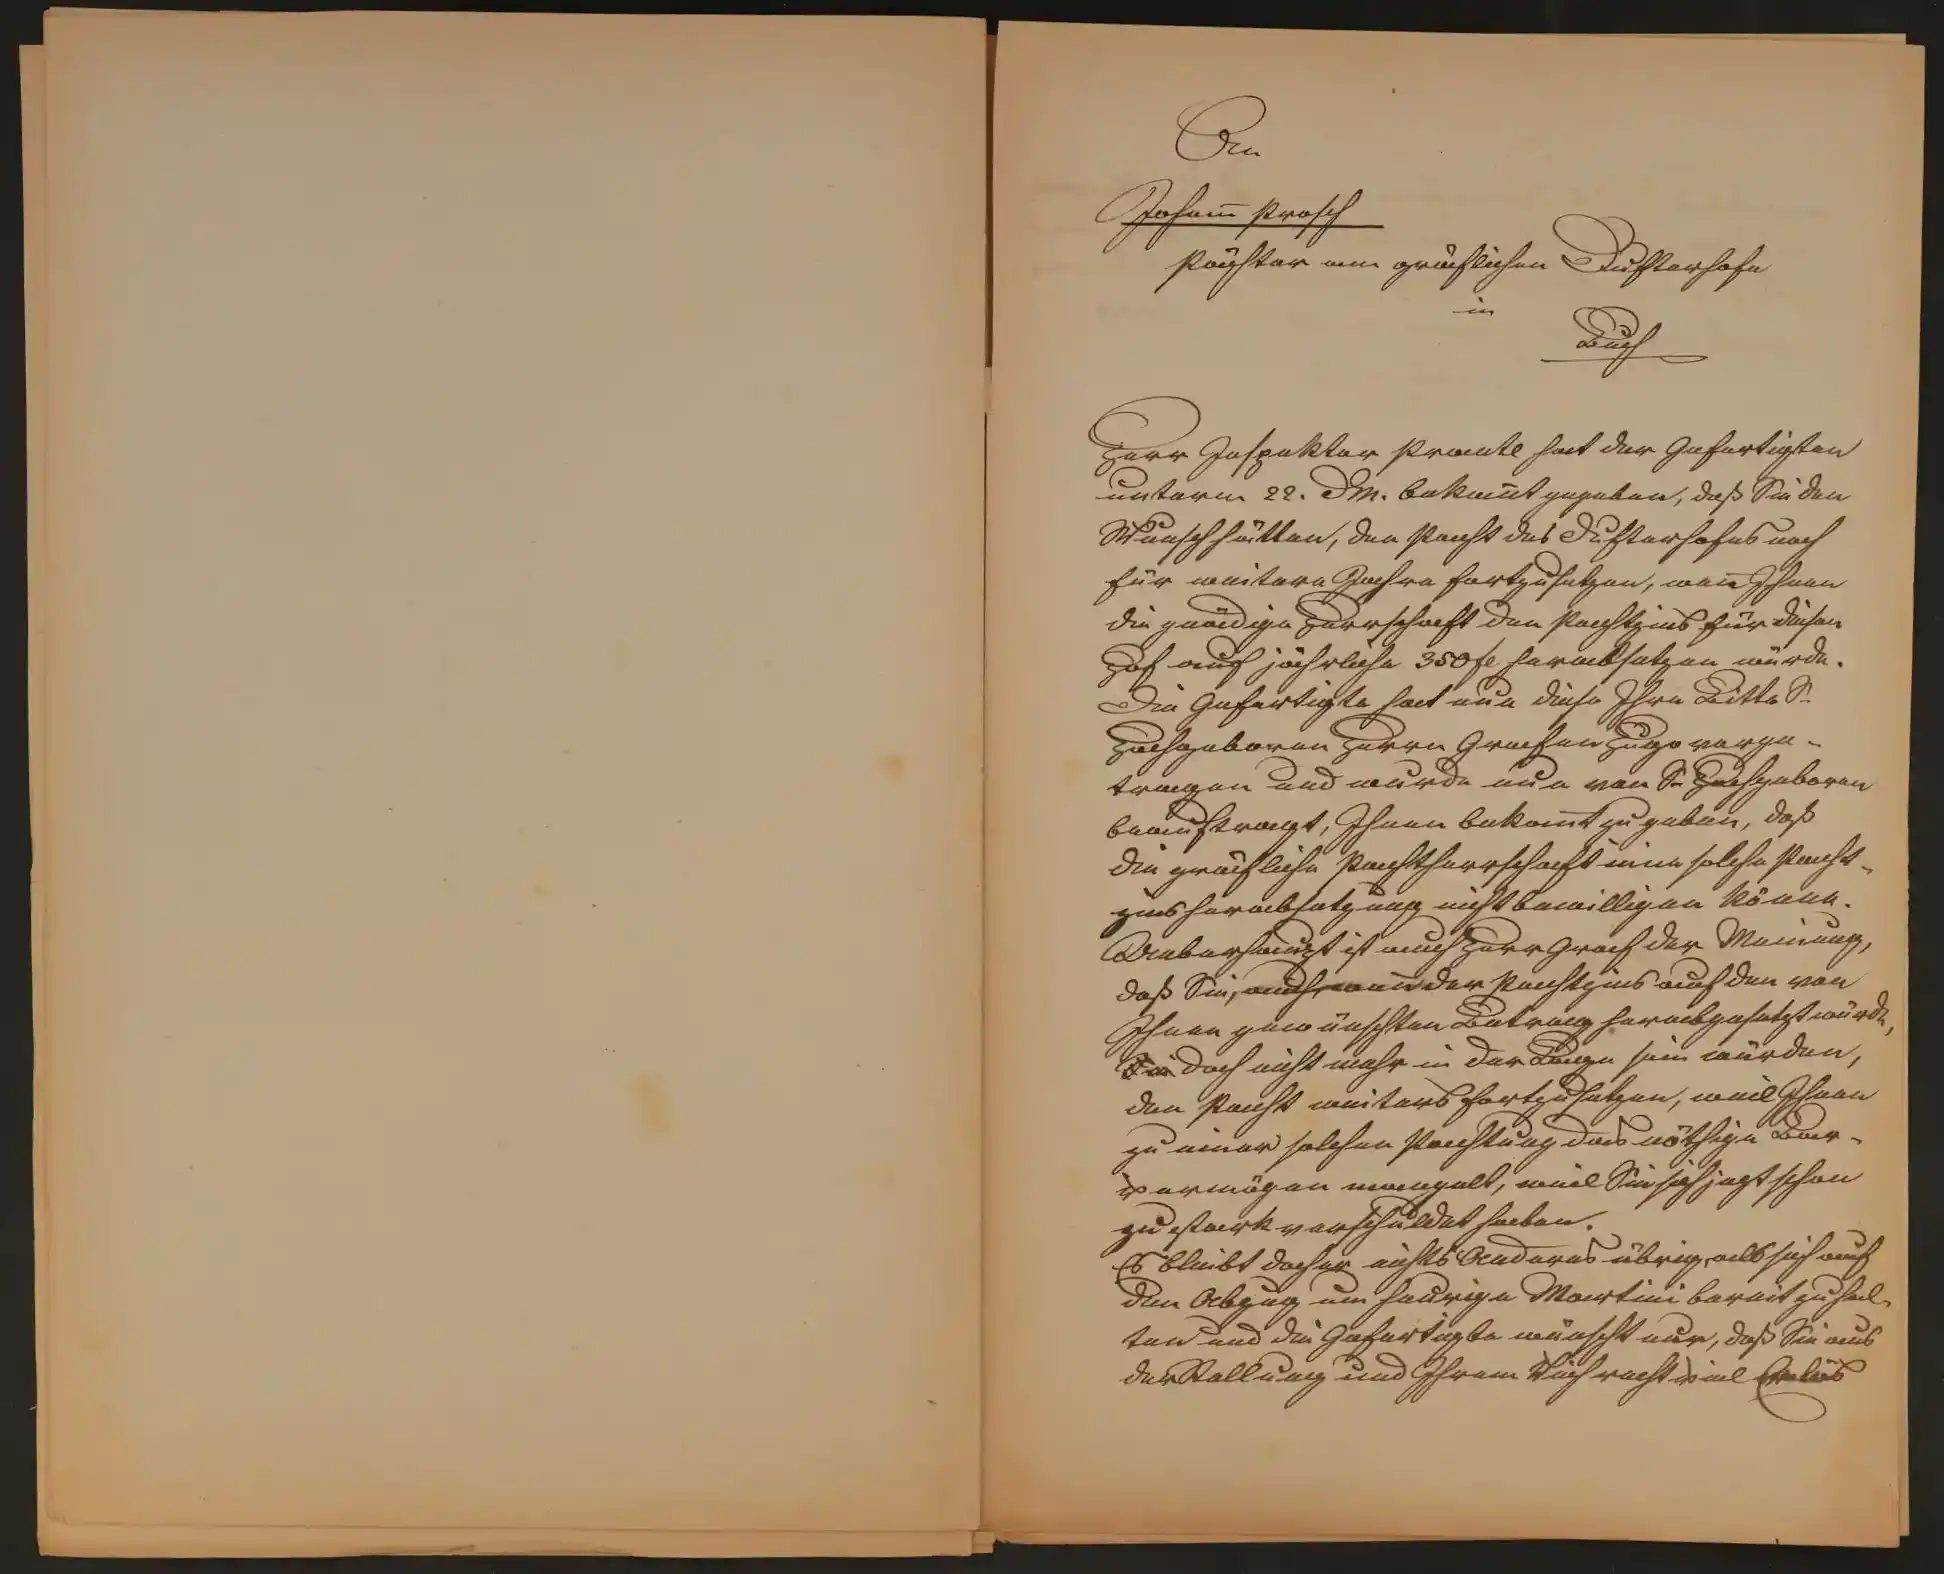 An
Johann Prosch
Pächter am gräflichen Dufterhofe
in
Buch
Herr Inspektor Prantl hat der Gefertigten
unterm 22. d. M. bekannt gegeben, daß Sie den
Wunsch hätten, den Pacht des Dufterhofes noch
für weitere Jahre fortzusetzen, wenn Ihnen
die gnädige Herrschaft den Pachtzins für diesen
Hof auf jährliche 350 fl herabsetzen würde.
Die Gefertigte hat nun diese Ihre Bitte Sr.
Hochgeboren Herrn Grafen Hugo vorge-
tragen und wurde nun von Sr Hochgeboren
beauftragt, Ihnen bekannt zu geben, daß
die gräfliche Pachtherrschaft eine solche Pacht-
zinsherabsetzung nicht bewilligen könne.
Ueberhaupt ist auch Herr Graf der Meinung,
daß Sie, auch wenn der Pachtzins auf den von
Ihnen gewünschten Betrag herabgesetzt würde,
Sie doch nicht mehr in der Lage sein würden,
den Pacht weiters fortzusetzen, weil Ihnen
zu einer solchen Pachtung das nöthige Bar-
vermögen mangelt, weil Sie sich jezt schon
zu stark verschuldet haben.
Es bleibt daher nichts Anderes übrig, als sich auf
den Abzug um heurige Martini bereit zu hal-
ten und die Gefertigte wünscht nur, daß Sie aus
der Stallung und Ihrem Vieh recht viel Erlös